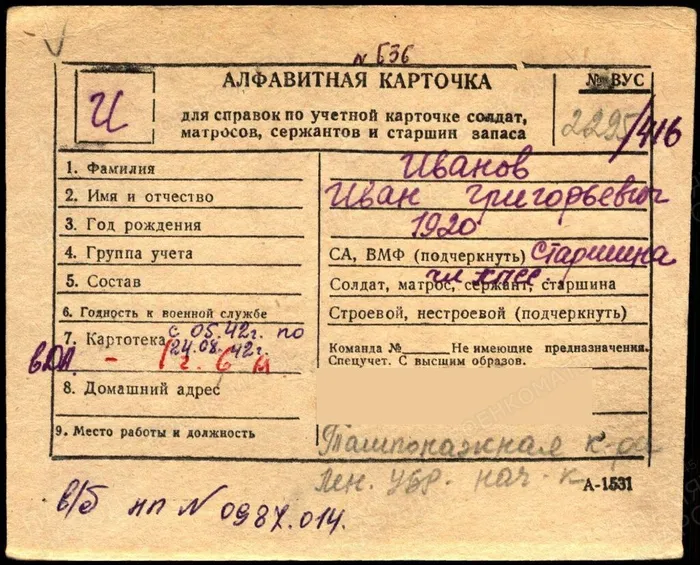 № 636
АЛФАВИТНАЯ КАРТОЧКА
для справок по учетной карточке солдат,
матросов, сержантов и старшин запаса
И
№ ВУС
2295/416
1. Фамилия Иванов
2. Имя и отчество Иван Григорьевич
3. Год рождения 1920
4. Группа учета СА, ВМФ (подчеркнуть) Старшина
чл КПСС.
5. Состав Солдат, матрос, сержант, старшина
6. Годность к военной службе Строевой, нестроевой (подчеркнуть)
7. Картотека с 05.42г. по
24.08.42г.
Команда № Не имеющие предназначения.
Спецучет. С высшим образов.
8. Домашний адрес
9. Место работы и должность Тампонажная к-ра
нач-к
А-1531
в/б нп № 0987.014.